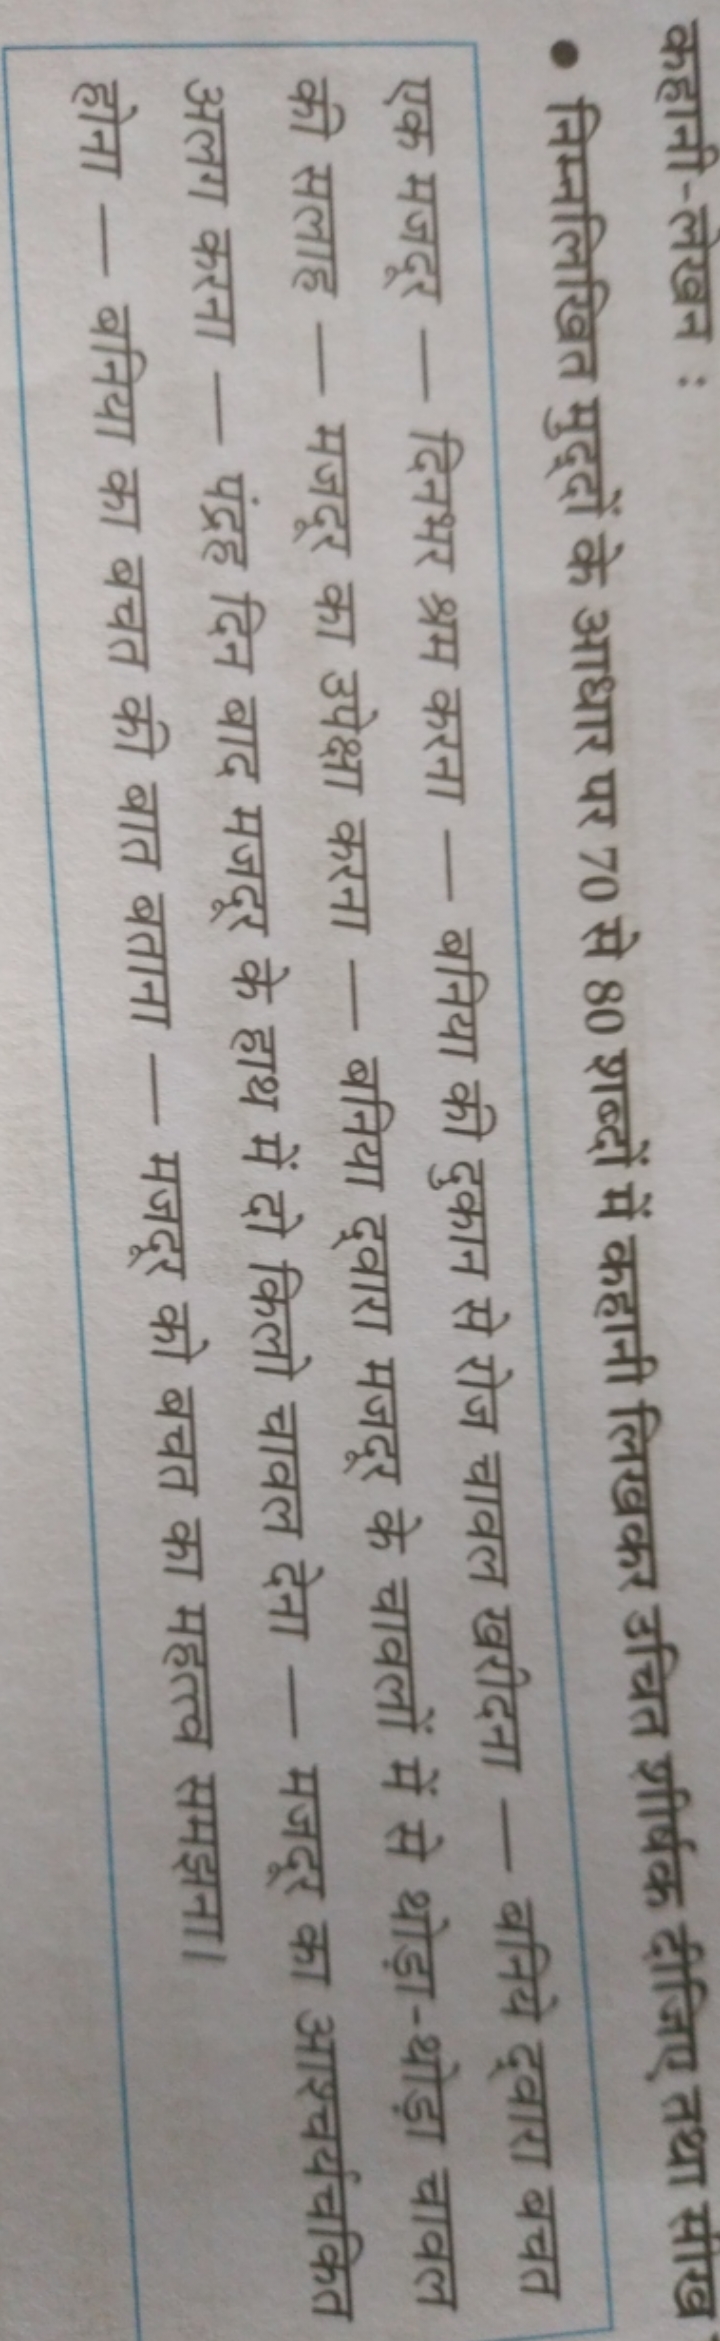 कहानी-लेखन :
● निम्नलिखित मुद्दों के आधार पर 70 से 80 शब्दों में कहानी लिखकर उचित शीर्षक दीजिए तथा सीख
एक मजदूर — दिनभर श्रम करना — बनिया की दुकान से रोज चावल खरीदना — बनिये द्वारा बचत
की सलाह — मजदूर का उपेक्षा करना — बनिया द्वारा मजदूर के चावलों में से थोड़ा-थोड़ा चावल
अलग करना — पंद्रह दिन बाद मजदूर के हाथ में दो किलो चावल देना — मजदूर का आश्चर्यचकित
होना — बनिया का बचत की बात बताना — मजदूर को बचत का महत्त्व समझना।